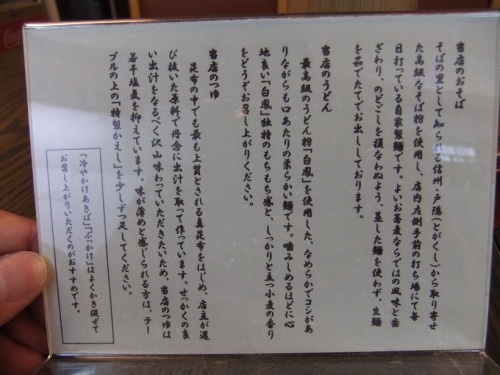 当店のおそば
そばの里として知られる信州・戸隠(とがくし)から取り寄せ
た高級なそば粉を使用し、店内左側手前の打ち場にて毎
日打っている自家製麺です。よいお蕎麦ならではの風味と歯
ざわり、のどごしを損なわぬよう、蒸した麺を使わず、生麺
を茹でたてでお出ししております。
当店のうどん
最高級のうどん粉「白鳳」を使用した、なめらかでコシがあ
りながらも口あたりの柔らかい麺です。噛みしめるほどに心
地良い「白鳳」独特のもちもち感と、しっかりと立つ小麦の香り
をどうぞお召し上がりください。
当店のつゆ
昆布の中でも最も上質とされる真昆布をはじめ、店主が選
び抜いた原料で丹念に出汁を取って作っています。せっかくの良
い出汁をなるべく沢山味わっていただきたいため、当店のつゆは
若干塩気を抑えています。味が薄めと感じられる方は、テー
ブルの上の「特製かえし」を少しずつ足してください。
「冷やかけあさば」「ぶっかけ」はよくかき混ぜて
お召し上がりいただくのがおすすめです。